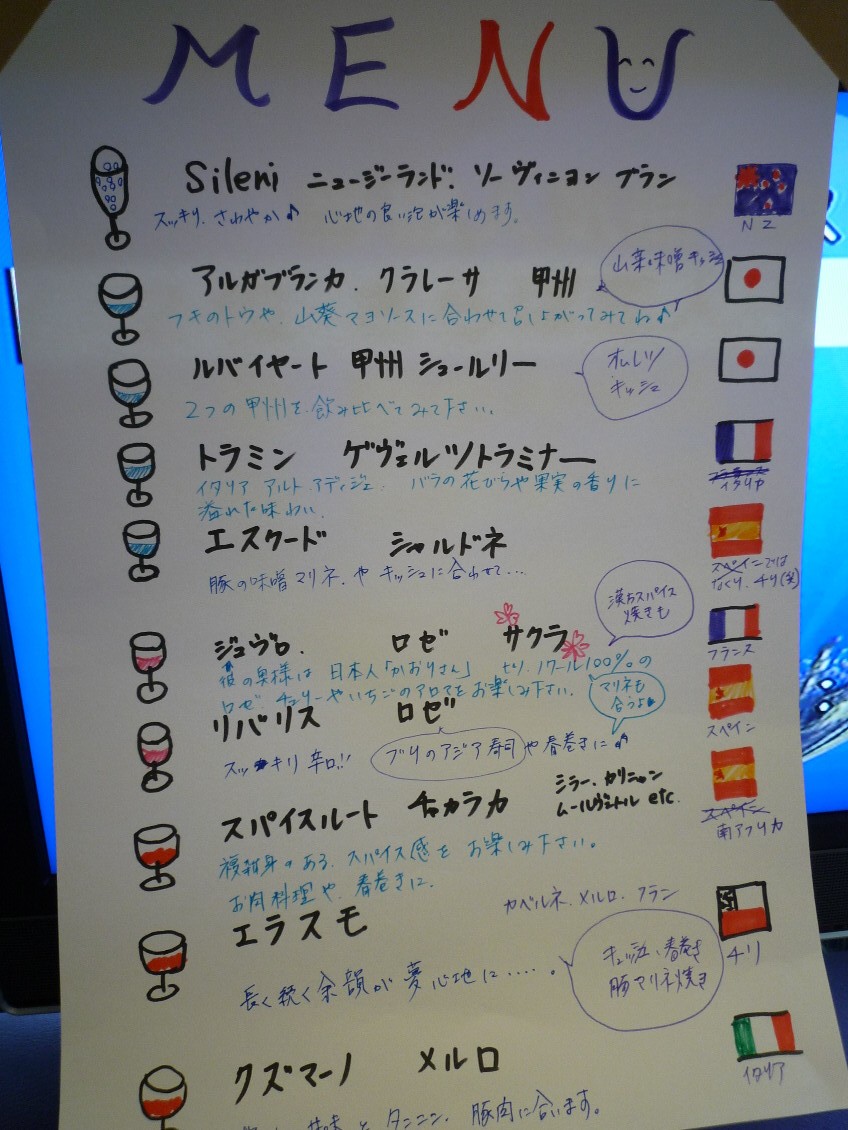 MENU
Sileni ニュージーランド. ソーヴィニヨン ブラン
スッキリ、さわやか♪ 心地の良い泡が楽しめます。
NZ
アルガブランカ. クラレーサ 甲州
山菜味噌キッシュ
フキのトウや、山葵マヨソースに合わせて召し上がってみてね♪
ルバイヤート 甲州 シュールリー
オムレツ/
キッシュ
2つの甲州を飲み比べてみて下さい。
トラミン ゲヴェルツトラミナー
イタリア アルト.アディジェ. バラの花びらや果実の香りに
溢れた味わい
イタリヤ
エスクード シャルドネ
豚の味噌マリネ.や キッシュに合わせて...
スペインでは
なくり、チリ(笑)
漢方スパイス
焼きも
ジュヴロ. ロゼ サクラ
フランス
彼の奥様は 日本人「かおりさん」 ピノ.ノワール100%の
ロゼ チェリーやいちごのアロマをお楽しみ下さい.
マリネも
合うよ
リバリス ロゼ
スペイン
スッキリ 辛口!! ブリのアジア寿司や春巻きに♪
スパイスルート チャカラカ
ミラー、カリニャン
ムールヴェドル etc.
スペイン
南アフリカ
複雑身のある、スパイス感を お楽しみ下さい。
お肉料理や、春巻きに.
エラスモ
カベルネ.メルロ.フラン
チリ
長く続く余韻が夢心地に.....。
キッシュ、春巻き
豚マリネ焼き
クズマーノ メルロ
イタリア
甘味 と タンニン. 豚肉に合います。